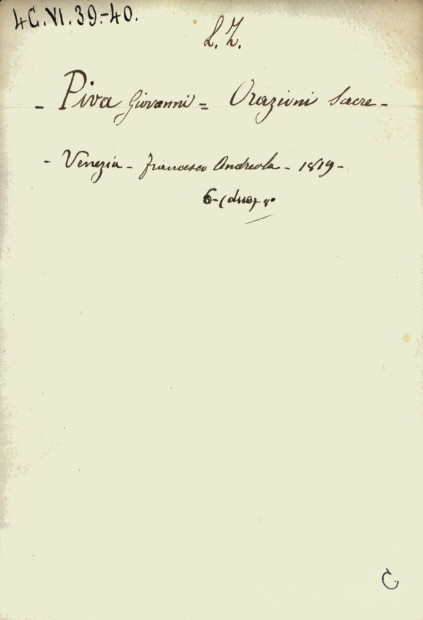 4C.VI.39.-40.
L.Z.
- Piva Giovanni = Orazioni Sacre -
- Venezia - Francesco Andreola - 1819 -
6-(due) 8°
C